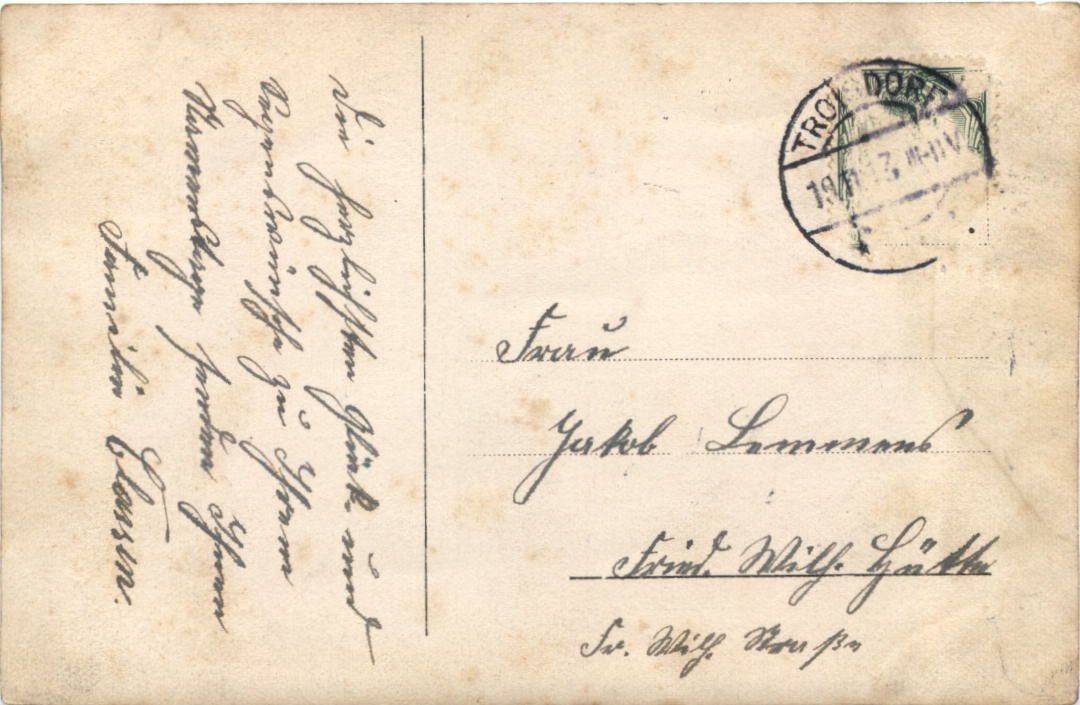 Die herzlichsten Glück- und
Segenswünsche zu Ihrem
Namenstage senden Ihnen
Familie Clasen.
TROISDORF
Frau
Jakob Lemmens
Fried. Wilh. Hütte
Fr. Wilh. Straße